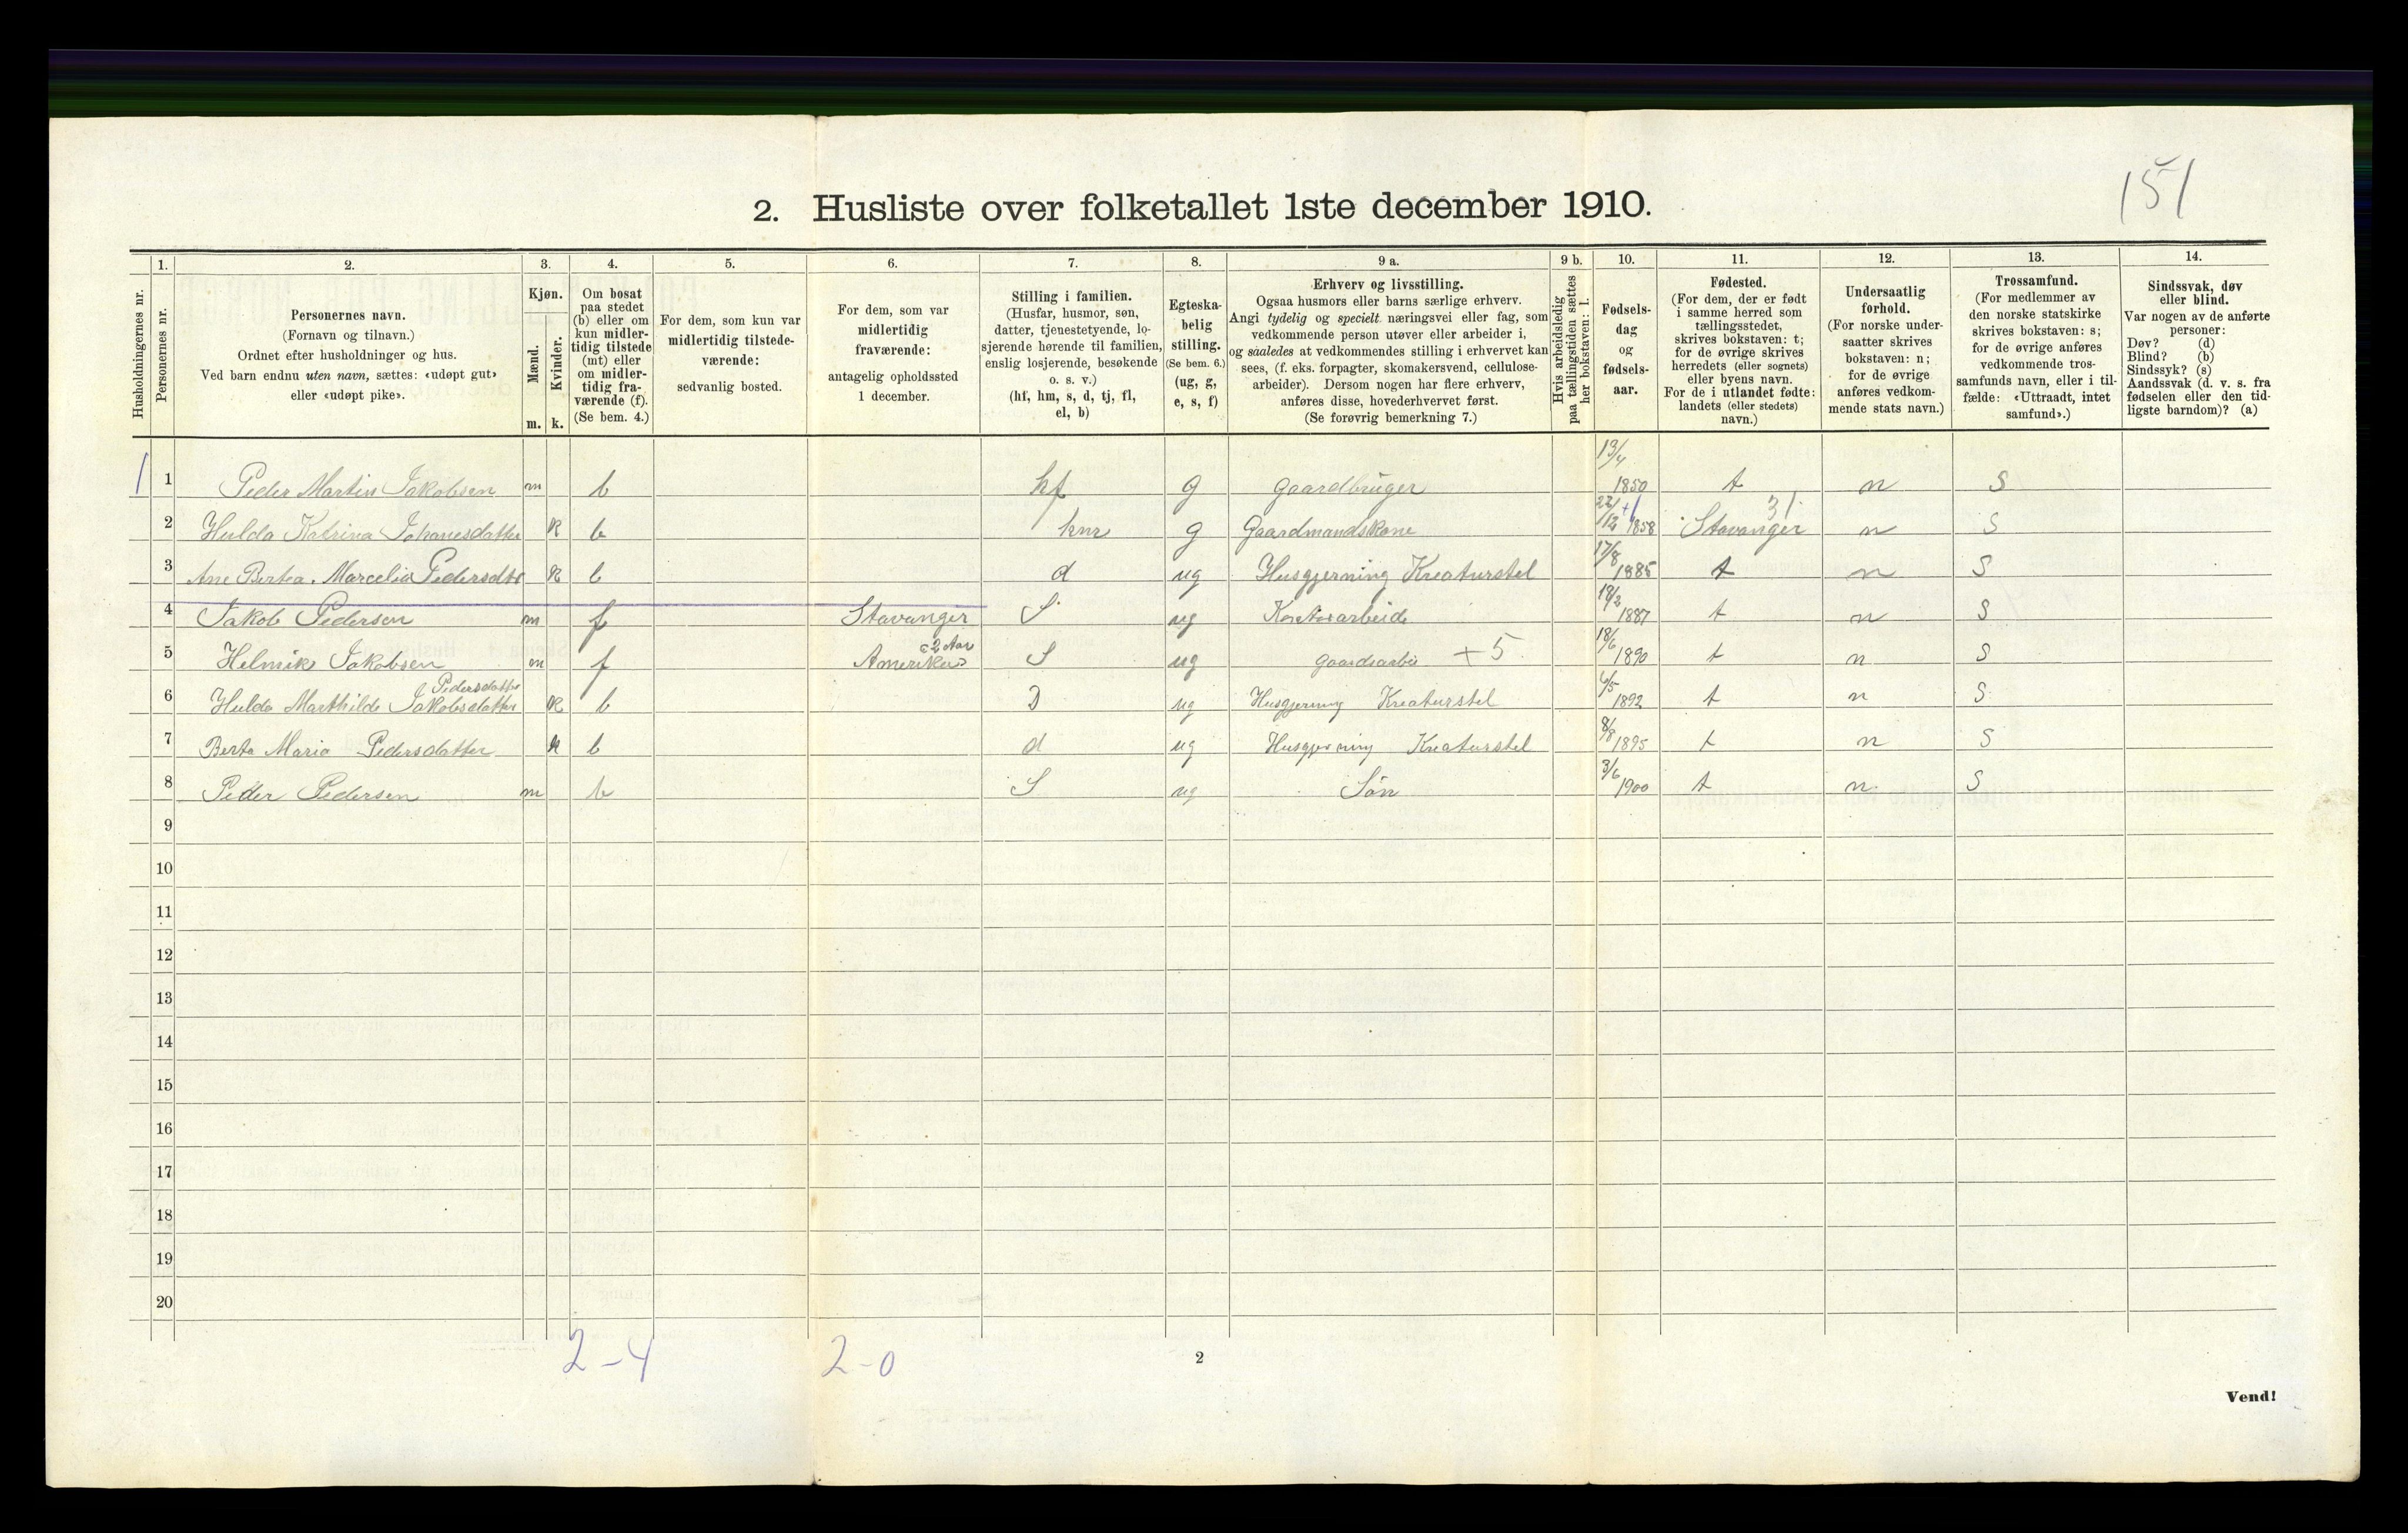 151
2. Husliste over folketallet 1ste december 1910.
1. 2. 3. 4. 5. 6. 7. 8. 9 a. 9 b. 10. 11. 12. 13. 14.
Husholdningernes nr.
Personernes nr.
Personernes navn.
(Fornavn og tilnavn.)
Ordnet efter husholdninger og hus.
Ved barn endnu uten navn, sættes: «udøpt gut»
eller «udøpt pike».
Kjøn.
Mænd.
Kvinder.
m. k.
Om bosat
paa stedet
(b) eller om
kun midler-
tidig tilstede
(mt) eller
om midler-
tidig fra-
værende (f).
(Se bem. 4.)
For dem, som kun var
midlertidig tilstede-
værende:
sedvanlig bosted.
For dem, som var
midlertidig
fraværende:
antagelig opholdssted
1 december.
Stilling i familien.
(Husfar, husmor, søn,
datter, tjenestetyende, lo-
sjerende hørende til familien,
enslig losjerende, besøkende
o. s. v.)
(hf, hm, s, d, tj, fl,
el, b)
Egteska-
belig
stilling.
(Se bem. 6.)
(ug, g,
e, s, f)
Erhverv og livsstilling.
Ogsaa husmors eller barns særlige erhverv.
Angi tydelig og specielt næringsvei eller fag, som
vedkommende person utøver eller arbeider i,
og saaledes at vedkommendes stilling i erhvervet kan
sees, (f. eks. forpagter, skomakersvend, cellulose-
arbeider). Dersom nogen har flere erhverv,
anføres disse, hovederhvervet først.
(Se forøvrig bemerkning 7.)
Hvis arbeidsledig
paa tællingstiden sættes
her bokstaven: l.
Fødsels-
dag
og
fødsels-
aar.
Fødested.
(For dem, der er født
i samme herred som
tællingsstedet,
skrives bokstaven: t;
for de øvrige skrives
herredets (eller sognets)
eller byens navn.
For de i utlandet fødte:
landets (eller stedets)
navn.)
Undersaatlig
forhold.
(For norske under-
saatter skrives
bokstaven: n;
for de øvrige
anføres vedkom-
mende stats navn.)
Trossamfund.
(For medlemmer av
den norske statskirke
skrives bokstaven: s;
for de øvrige anføres
vedkommende tros-
samfunds navn, eller i til-
fælde: «Uttraadt, intet
samfund».)
Sindssvak, døv
eller blind.
Var nogen av de anførte
personer:
Døv? (d)
Blind? (b)
Sindssyk? (s)
Aandssvak (d. v. s. fra
fødselen eller den tid-
ligste barndom)? (a)
1 1 Peder Martin Jakobsen m b hf g gaardbruger 13/4 1850 t n S
2 Hulda Katrina Johanesdatter K b hm g Gaardmandskone 22/12 +1 1858 Stavanger 31. n S
3 Ane Bertea Marcelia Pedersdtr K b d ug Husgjerning Kreaturstel 17/8 1885 t n S
4 Jakob Pedersen m f Stavanger S ug Kontorarbeide 18/2 1887 t n S
5 Helmik Jakobsen m f Amerika 2 Aar S ug gaardsarbei +5 18/6 1890 t n S
6 Hulda Marthilde Jakobsdatter Pedersdatter K b D ug Husgjerning Kreaturstel 6/5 1892 t n S
7 Berta Maria Pedersdatter K b d ug Husgjerning Kreaturstel 8/8 1895 t n S
8 Peder Pedersen m b S ug Sön 3/6 1900 t n S
9
10
11
12
13
14
15
16
17
18
19
20
2-4 2-0
2
Vend!